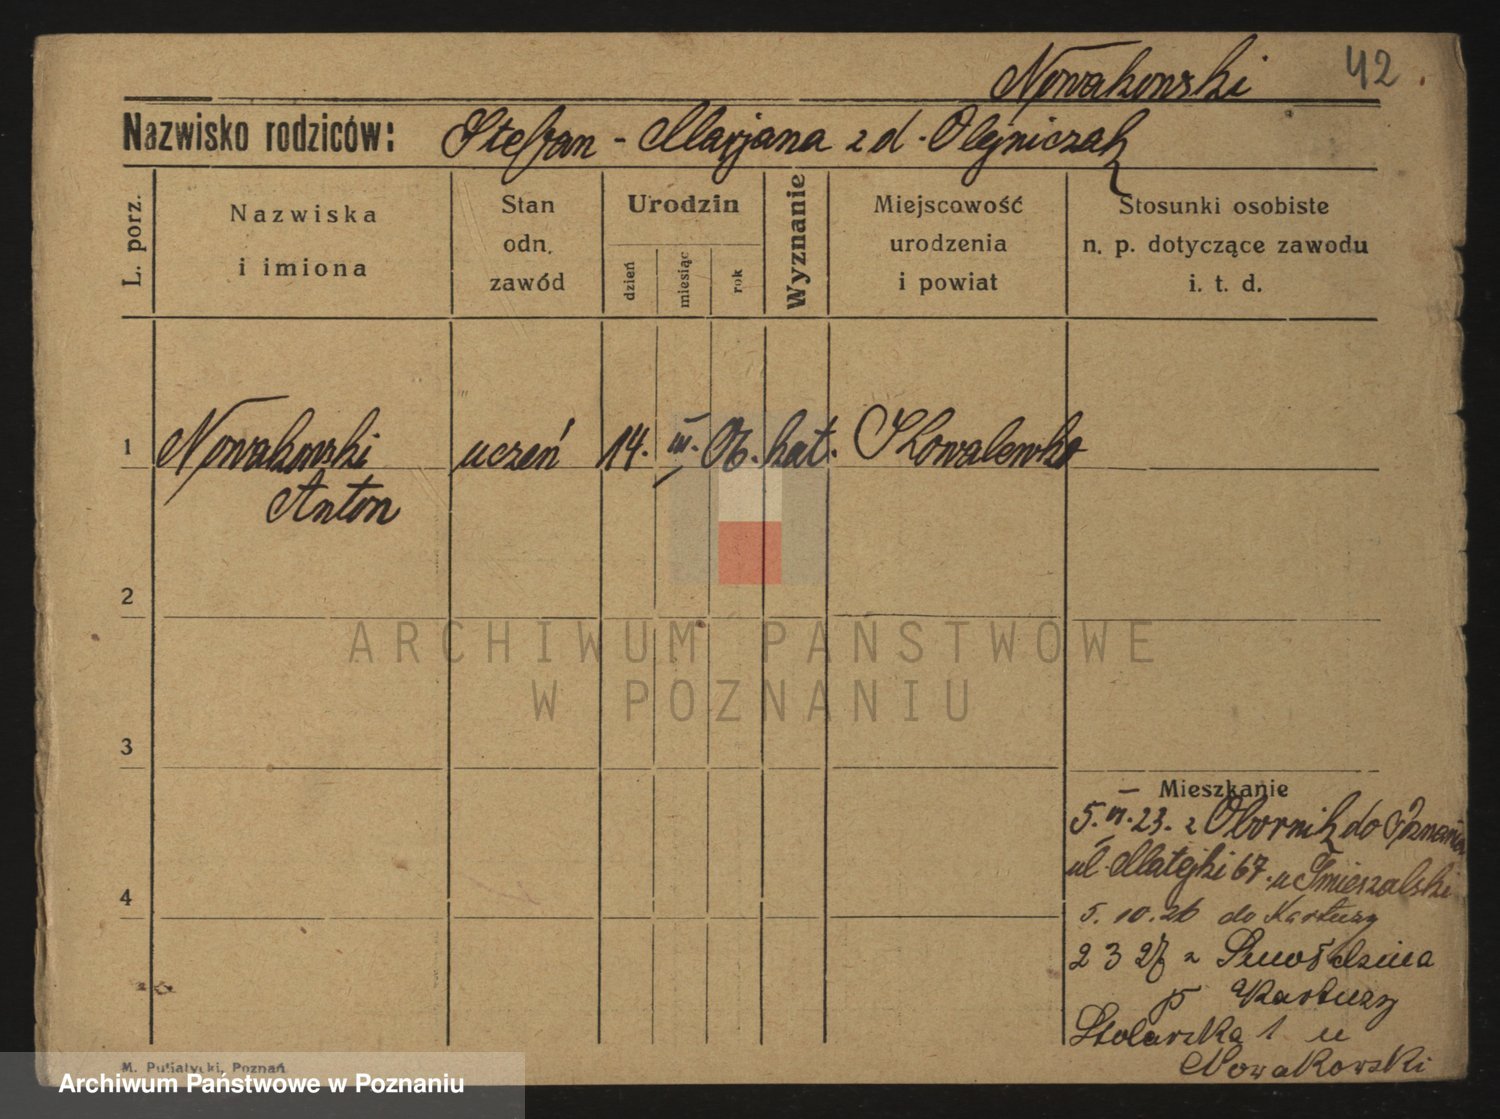 Nowakowski 42
Nazwisko rodziców: Stefan - Marjana z d. Olejniczak
L. porz.
Nazwiska
i imiona
Stan
odn.
zawód
Urodzin
dzień
miesiąc
rok
Wyznanie
Miejscowość
urodzenia
i powiat
Stosunki osobiste
n. p. dotyczące zawodu
i. t. d.
1 Nowakowski uczeń 14. III. 06. kat. Kowalewko
Anton
2
3
4
Mieszkanie
5. 23. z Obornik do Poznania
ul. Matejki 67. u
5. 10. 26 do Kartuzy
2 3 27 z Smołdzina
p Kartuzy
Stolarska 1 u
Nowakowski
M. Putiatycki, Poznań
ARCHIWUM PAŃSTWOWE
W POZNANIU
Archiwum Państwowe w Poznaniu